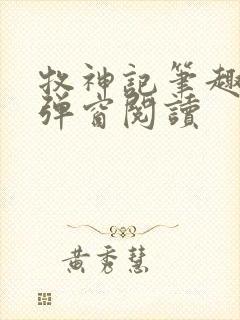 牧神記筆趣
彈窗閱讀
黃秀慧